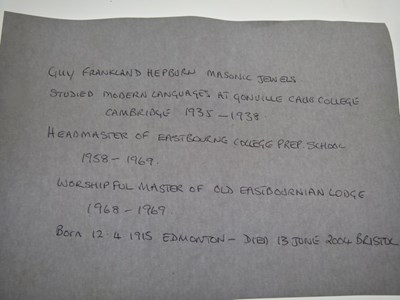 GUY FRANKLAND HEPBURN MASONIC JEWELS
STUDIED MODERN LANGUAGES AT GONVILLE CAUIS COLLEGE
CAMBRIDGE 1935-1938
HEADMASTER OF EASTBOURNE COLLEGE PREP. SCHOOL
1958-1969
WORSHIPFUL MASTER OF OLD EASTBOURNIAN LODGE
1968-1969
BORN 12-4 1915 EDMONTON - DIED 13 JUNE 2004 BRISTOL